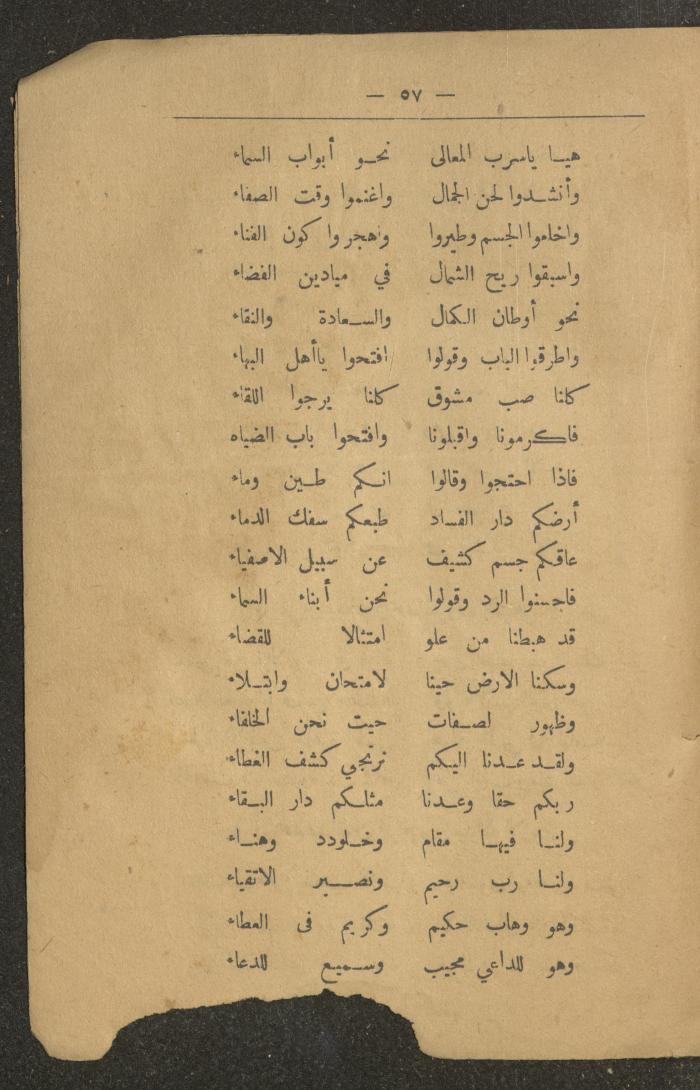 — ٥٧ —
هيا ياسرب المعالى نحو أبواب السماء
وأنشدوا لحن الجمال واغنموا وقت الصفاء
واخلعوا الجسم وطيروا واهجروا كون الفناء
واسبقوا ريح الشمال في ميادين الفضاء
نحو أوطان الكمال والسعادة والنقاء
واطرقوا الباب وقولوا افتحوا ياأهل البهاء
كلنا صب مشوق كلنا يرجوا اللقاء
فاكرمونا واقبلونا وافتحوا باب الضياه
فاذا احتجوا وقالوا انكم طين وماء
أرضكم دار الفساد طبعكم سفك الدماء
عاقكم جسم كشيف عن سبيل الاصفياء
فاحسنوا الرد وقولوا نحن أبناء السماء
قد هبطنا من علو امتثالا للقضاء
وسكنا الارض حينا لامتحان وابتلاء
وظهور لصفات حيت نحن الخلفاء
ولقد عدنا اليكم نرتجي كشف الغطاء
ربكم حقا وعدنا مثلكم دار البقاء
ولنا فيها مقام وخلودد وهناء
ولنا رب رحيم ونصير الاتقياء
وهو وهاب حكيم وكريم فى العطاء
وهو للداعي مجيب وسميع للدعاء